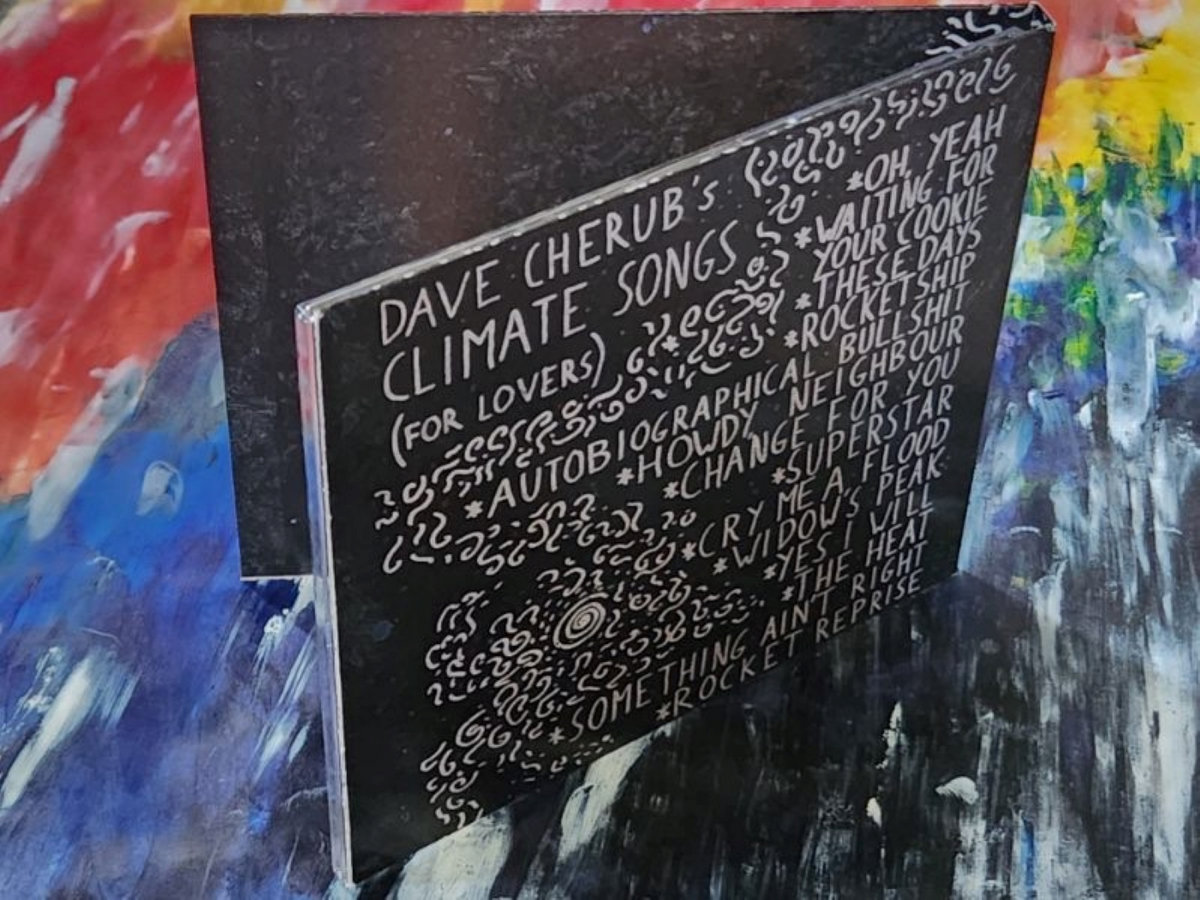 DAVE CHERUB's
CLIMATE SONGS
(FOR LOVERS)
*OH, YEAH
*WAITING FOR
YOUR COOKIE
*THESE DAYS
*ROCKETSHIP
*AUTOBIOGRAPHICAL BULLSHIT
*HOWDY NEIGHBOUR
*CHANGE FOR YOU
*SUPERSTAR
*CRY ME A FLOOD
*WIDOW'S PEAK
*YES I WILL
*THE HEAT
*SOMETHING AIN'T RIGHT
*ROCKET REPRISE